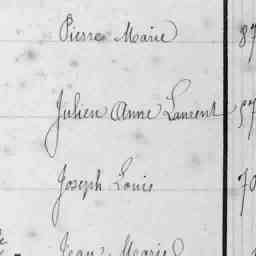 Pierre Marie 87
Julien Anne Laurent 57
Joseph Louis 70
Jean Marie